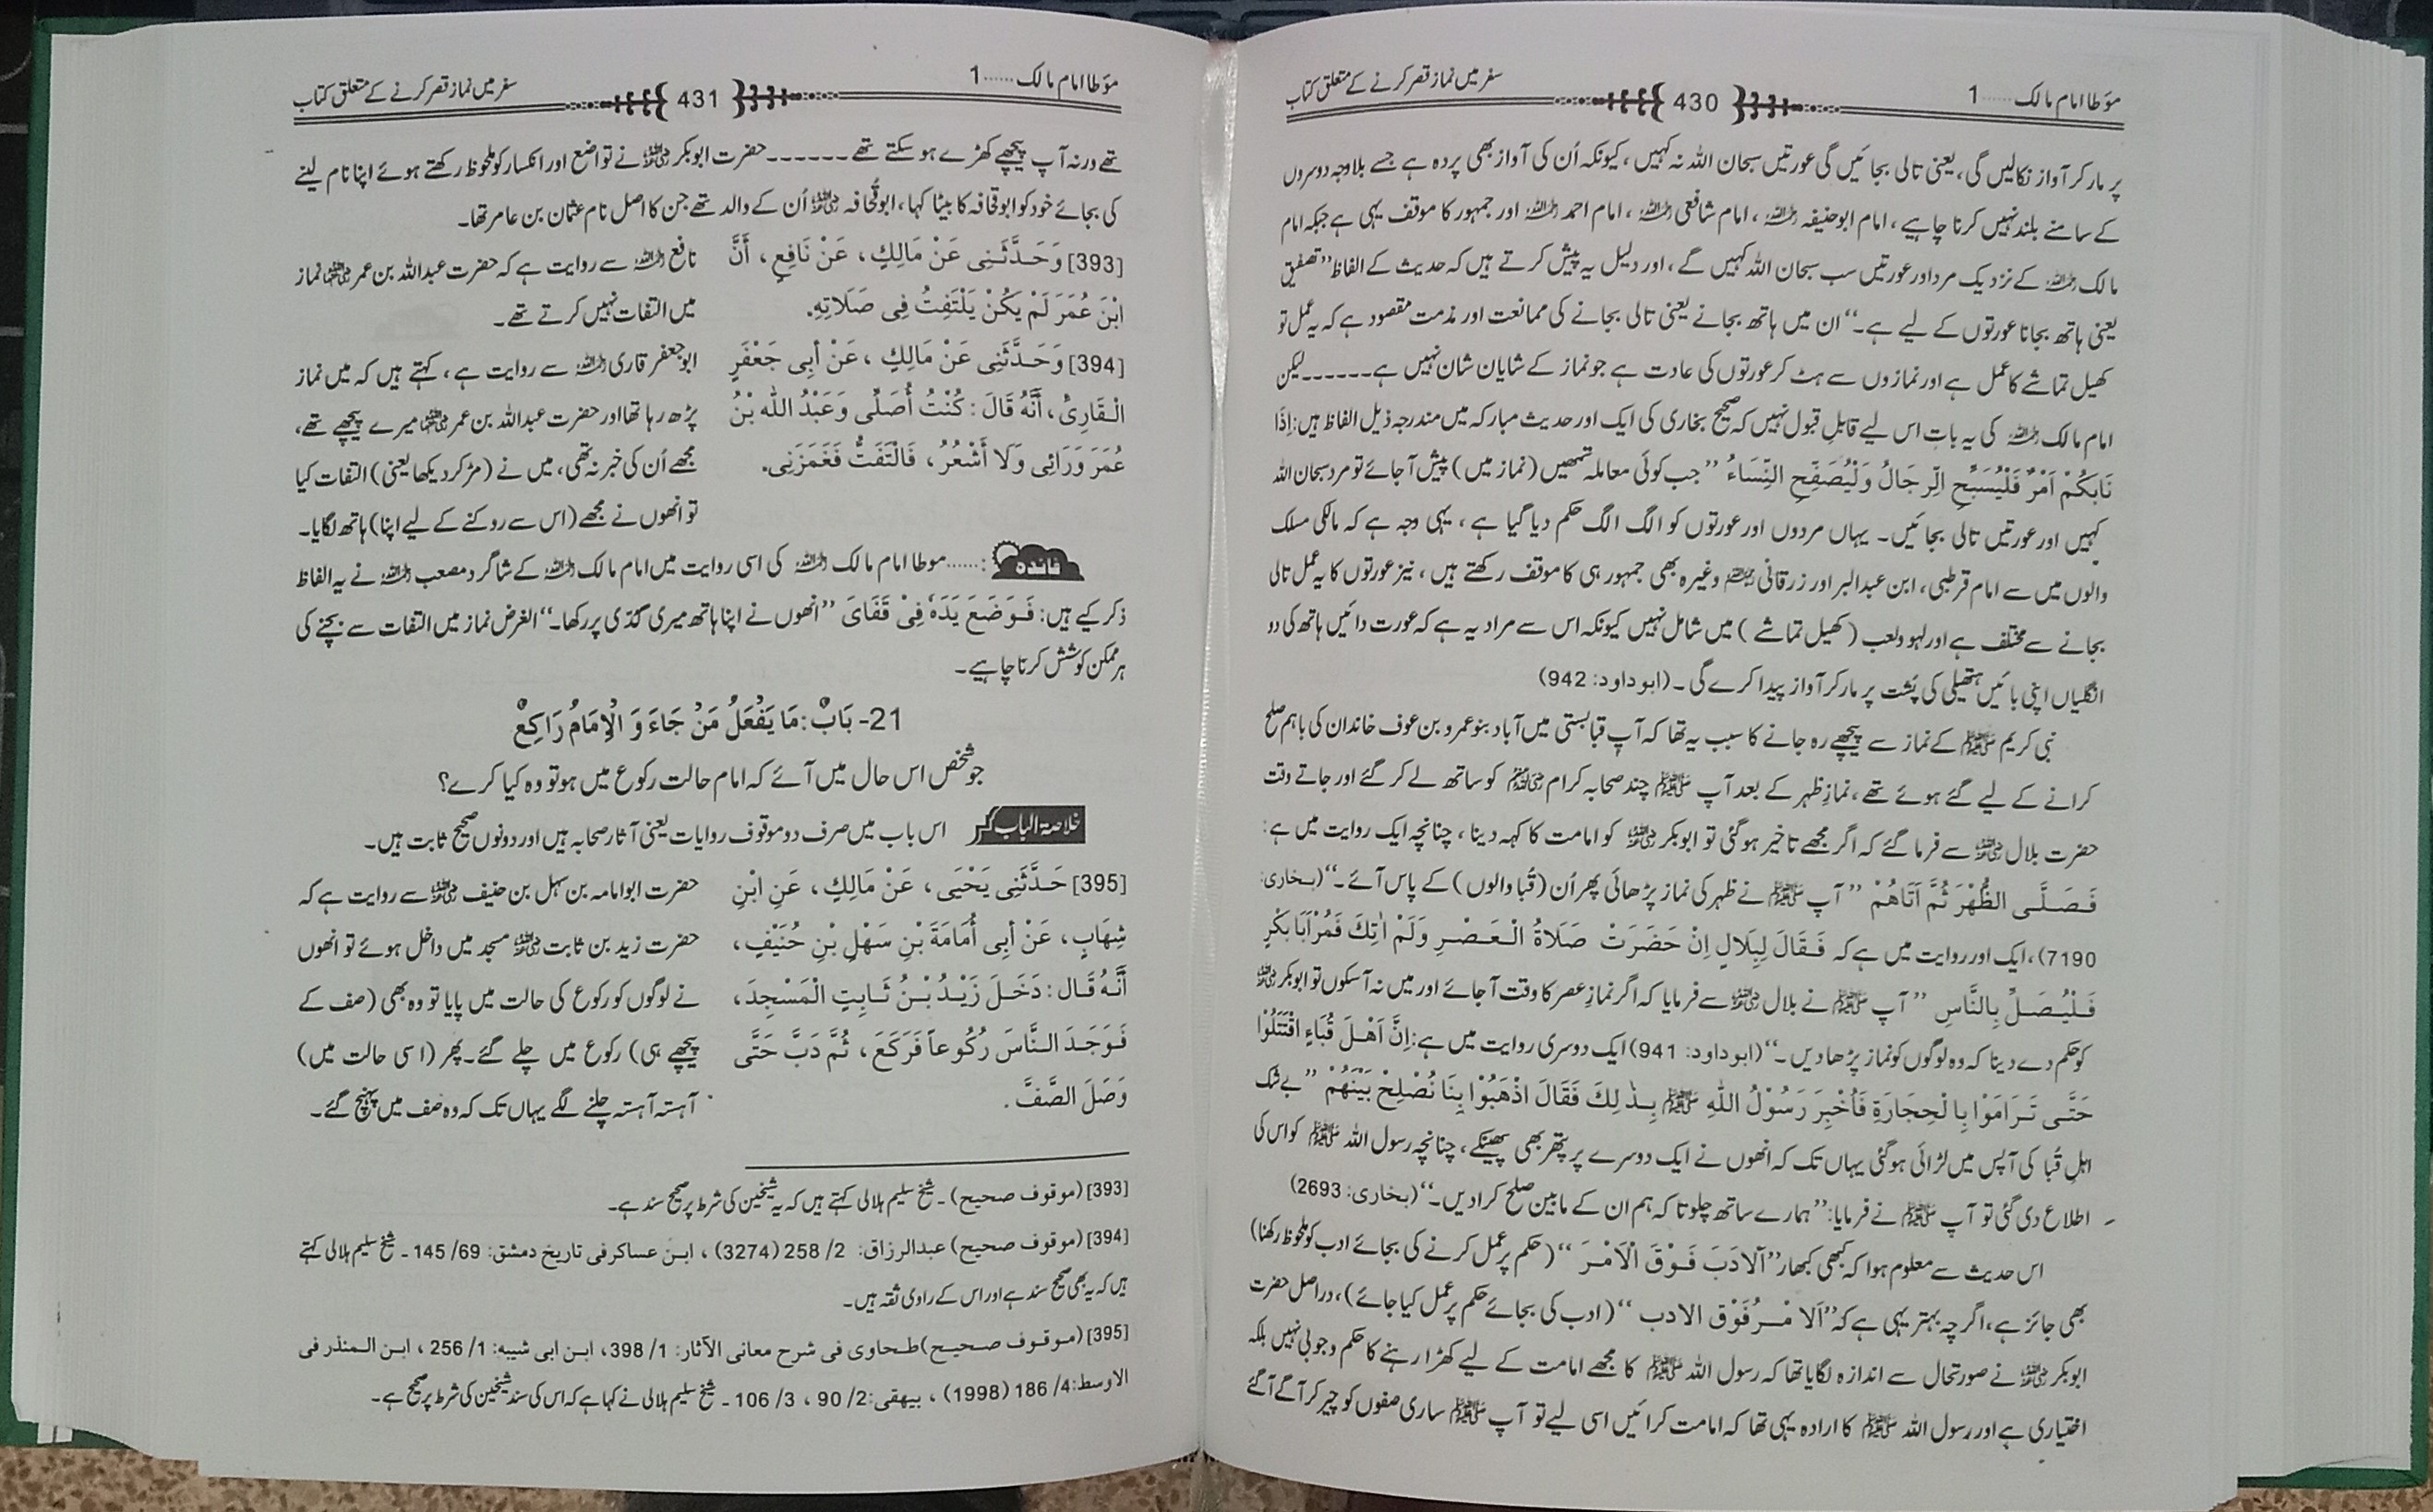 موَطا امام مالک ...... 1
430
سفر میں نماز قصر کرنے کے متعلق کتاب
پر مار کر آواز نکالیں گی، یعنی تالی بجائیں گی عورتیں سبحان اللہ نہ کہیں، کیونکہ اُن کی آواز بھی پردہ ہے جسے بلاوجہ دوسروں
کے سامنے بلند نہیں کرنا چاہیے، امام ابوحنیفہ رحمہ اللہ، امام شافعی رحمہ اللہ، امام احمد رحمہ اللہ اور جمہور کا موقف یہی ہے جبکہ امام
مالک رحمہ اللہ کے نزدیک مرد اور عورتیں سب سبحان اللہ کہیں گے، اور دلیل یہ پیش کرتے ہیں کہ حدیث کے الفاظ ’’تصفیق
یعنی ہاتھ بجانا عورتوں کے لیے ہے۔‘‘ ان میں ہاتھ بجانے یعنی تالی بجانے کی ممانعت اور مذمت مقصود ہے کہ یہ عمل تو
کھیل تماشے کا عمل ہے اور نمازوں سے ہٹ کر عورتوں کی عادت ہے جو نماز کے شایان شان نہیں ہے۔۔۔۔۔۔لیکن
امام مالک رحمہ اللہ کی یہ بات اس لیے قابلِ قبول نہیں کہ صحیح بخاری کی ایک اور حدیث مبارکہ میں مندرجہ ذیل الفاظ ہیں: اِذَا
نَابَكُمْ اَمْرٌ فَلْيُسَبِّحِ الرِّجَالُ وَلْيُصَفِّحِ النِّسَاءُ ’’جب کوئی معاملہ تمھیں (نماز میں) پیش آ جائے تو مرد سبحان اللہ
کہیں اور عورتیں تالی بجائیں۔ یہاں مردوں اور عورتوں کو الگ الگ حکم دیا گیا ہے، یہی وجہ ہے کہ مالکی مسلک
والوں میں سے امام قرطبی، ابن عبدالبر اور زرقانی رحمہم اللہ وغیرہ بھی جمہور ہی کا موقف رکھتے ہیں، نیز عورتوں کا یہ عمل تالی
بجانے سے مختلف ہے اور لہو ولعب (کھیل تماشے) میں شامل نہیں کیونکہ اس سے مراد یہ ہے کہ عورت دائیں ہاتھ کی دو
انگلیاں اپنی بائیں ہتھیلی کی پُشت پر مار کر آواز پیدا کرے گی۔ (ابوداود: 942)
نبی کریم ﷺ کے نماز سے پیچھے رہ جانے کا سبب یہ تھا کہ آپ قبا بستی میں آباد بنو عمرو بن عوف خاندان کی باہم صلح
کرانے کے لیے گئے ہوئے تھے، نمازِ ظہر کے بعد آپ ﷺ چند صحابہ کرام رضی اللہ عنہم کو ساتھ لے کر گئے اور جاتے وقت
حضرت بلال رضی اللہ عنہ سے فرما گئے کہ اگر مجھے تاخیر ہو گئی تو ابوبکر رضی اللہ عنہ کو امامت کا کہہ دینا، چنانچہ ایک روایت میں ہے:
فَصَلَّى الظُّهْرَ ثُمَّ اَتَاهُمْ ’’آپ ﷺ نے ظہر کی نماز پڑھائی پھر اُن (قُبا والوں) کے پاس آئے۔‘‘ (بخاری:
7190)، ایک اور روایت میں ہے کہ فَقَالَ لِبِلَالٍ اِنْ حَضَرَتْ صَلَاةُ الْعَصْرِ وَلَمْ اٰتِكَ فَمُرْ اَبَابَكْرٍ
فَلْيُصَلِّ بِالنَّاسِ ’’آپ ﷺ نے بلال رضی اللہ عنہ سے فرمایا کہ اگر نمازِ عصر کا وقت آ جائے اور میں نہ آسکوں تو ابوبکر رضی اللہ عنہ
کو حکم دے دینا کہ وہ لوگوں کو نماز پڑھا دیں۔‘‘ (ابوداود: 941) ایک دوسری روایت میں ہے: اِنَّ اَهْلَ قُبَاءٍ اقْتَتَلُوْا
حَتّٰى تَرَامَوْا بِالْحِجَارَةِ فَاُخْبِرَ رَسُوْلُ اللّٰهِ ﷺ بِذٰلِكَ فَقَالَ اذْهَبُوْا بِنَا نُصْلِحُ بَيْنَهُمْ ’’بے شک
اہلِ قُبا کی آپس میں لڑائی ہو گئی یہاں تک کہ انھوں نے ایک دوسرے پر پتھر بھی پھینکے، چنانچہ رسول اللہ ﷺ کو اس کی
اطلاع دی گئی تو آپ ﷺ نے فرمایا: ’’ہمارے ساتھ چلو تا کہ ہم ان کے مابین صلح کرا دیں۔‘‘ (بخاری: 2693)
اس حدیث سے معلوم ہوا کہ کبھی کبھار ’’اَلادَبَ فَوْقَ الْاَمْرَ‘‘ (حکم پر عمل کرنے کی بجائے ادب کو ملحوظ رکھنا)
بھی جائز ہے، اگرچہ بہتر یہی ہے کہ ’’اَلا مْرُ فَوْق الادب‘‘ (ادب کی بجائے حکم پر عمل کیا جائے)، دراصل حضرت
ابوبکر رضی اللہ عنہ نے صورتحال سے اندازہ لگایا تھا کہ رسول اللہ ﷺ کا مجھے امامت کے لیے کھڑا رہنے کا حکم وجوبی نہیں بلکہ
اختیاری ہے اور رسول اللہ ﷺ کا ارادہ یہی تھا کہ امامت کرائیں اسی لیے تو آپ ﷺ ساری صفوں کو چیر کر آگے آگئے
موَطا امام مالک ...... 1
431
سفر میں نماز قصر کرنے کے متعلق کتاب
تھے ورنہ آپ پیچھے کھڑے ہو سکتے تھے۔۔۔۔۔۔حضرت ابوبکر رضی اللہ عنہ نے تواضع اور انکسار کو ملحوظ رکھتے ہوئے اپنا نام لینے
کی بجائے خود کو ابوقحافہ کا بیٹا کہا، ابوقُحافہ رضی اللہ عنہ اُن کے والد تھے جن کا اصل نام عثمان بن عامر تھا۔
[393] وَحَدَّثَنِى عَنْ مَالِكٍ، عَنْ نَافِعٍ، أَنَّ
ابْنَ عُمَرَ لَمْ يَكُنْ يَلْتَفِتُ فِى صَلَاتِهِ.
نافع رحمہ اللہ سے روایت ہے کہ حضرت عبداللہ بن عمر رضی اللہ عنہما نماز
میں التفات نہیں کرتے تھے۔
[394] وَحَدَّثَنِى عَنْ مَالِكٍ، عَنْ أَبِى جَعْفَرٍ
الْقَارِىْ، أَنَّهُ قَالَ: كُنْتُ أُصَلِّى وَعَبْدُ الله بْنُ
عُمَرَ وَرَائِى وَلَا أَشْعُرُ، فَالْتَفَتُّ فَغَمَزَنِى.
ابوجعفر قاری رحمہ اللہ سے روایت ہے، کہتے ہیں کہ میں نماز
پڑھ رہا تھا اور حضرت عبداللہ بن عمر رضی اللہ عنہما میرے پیچھے تھے،
مجھے اُن کی خبر نہ تھی، میں نے (مڑ کر دیکھا یعنی) التفات کیا
تو انھوں نے مجھے (اس سے روکنے کے لیے اپنا) ہاتھ لگایا۔
فائدہ :......موطا امام مالک رحمہ اللہ کی اسی روایت میں امام مالک رحمہ اللہ کے شاگرد مصعب رحمہ اللہ نے یہ الفاظ
ذکر کیے ہیں: فَوَضَعَ يَدَهٗ فِىْ قَفَاىَ ’’انھوں نے اپنا ہاتھ میری گدّی پر رکھا۔‘‘ الغرض نماز میں التفات سے بچنے کی
ہر ممکن کوشش کرنا چاہیے۔
21- بَابٌ: مَا يَفْعَلُ مَنْ جَاءَ وَ الْاِمَامُ رَاكِعٌ
جو شخص اس حال میں آئے کہ امام حالت رکوع میں ہو تو وہ کیا کرے؟
خلاصۃ الباب اس باب میں صرف دو موقوف روایات یعنی آثار صحابہ ہیں اور دونوں صحیح ثابت ہیں۔
[395] حَدَّثَنِى يَحْيَى، عَنْ مَالِكٍ، عَنِ ابْنِ
شِهَابٍ، عَنْ أَبِى أُمَامَةَ بْنِ سَهْلِ بْنِ حُنَيْفٍ،
أَنَّهُ قَال: دَخَلَ زَيْدُ بْنُ ثَابِتٍ الْمَسْجِدَ،
فَوَجَدَ النَّاسَ رُكُوعاً فَرَكَعَ، ثُمَّ دَبَّ حَتَّى
وَصَلَ الصَّفَّ.
حضرت ابوامامہ بن سہل بن حنیف رضی اللہ عنہ سے روایت ہے کہ
حضرت زید بن ثابت رضی اللہ عنہ مسجد میں داخل ہوئے تو انھوں
نے لوگوں کو رکوع کی حالت میں پایا تو وہ بھی (صف کے
پیچھے ہی) رکوع میں چلے گئے۔ پھر (اسی حالت میں)
آہستہ آہستہ چلنے لگے یہاں تک کہ وہ صف میں پہنچ گئے۔
[393] (موقوف صحیح)۔ شیخ سلیم ہلالی کہتے ہیں کہ یہ شیخین کی شرط پر صحیح سند ہے۔
[394] (موقوف صحیح) عبدالرزاق: 2/ 258 (3274)، ابن عساکر فی تاریخ دمشق: 69/ 145۔ شیخ سلیم ہلالی کہتے
ہیں کہ یہ بھی صحیح سند ہے اور اس کے راوی ثقہ ہیں۔
[395] (موقوف صحیح) طحاوی فی شرح معانی الآثار: 1/ 398، ابن ابی شیبہ: 1/ 256، ابن المنذر فی
الاوسط: 4/ 186 (1998)، بیہقی: 2/ 90، 3/ 106۔ شیخ سلیم ہلالی نے کہا ہے کہ اس کی سند شیخین کی شرط پر صحیح ہے۔